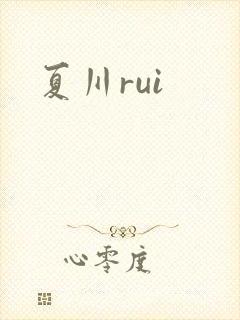 夏川rui
心零度